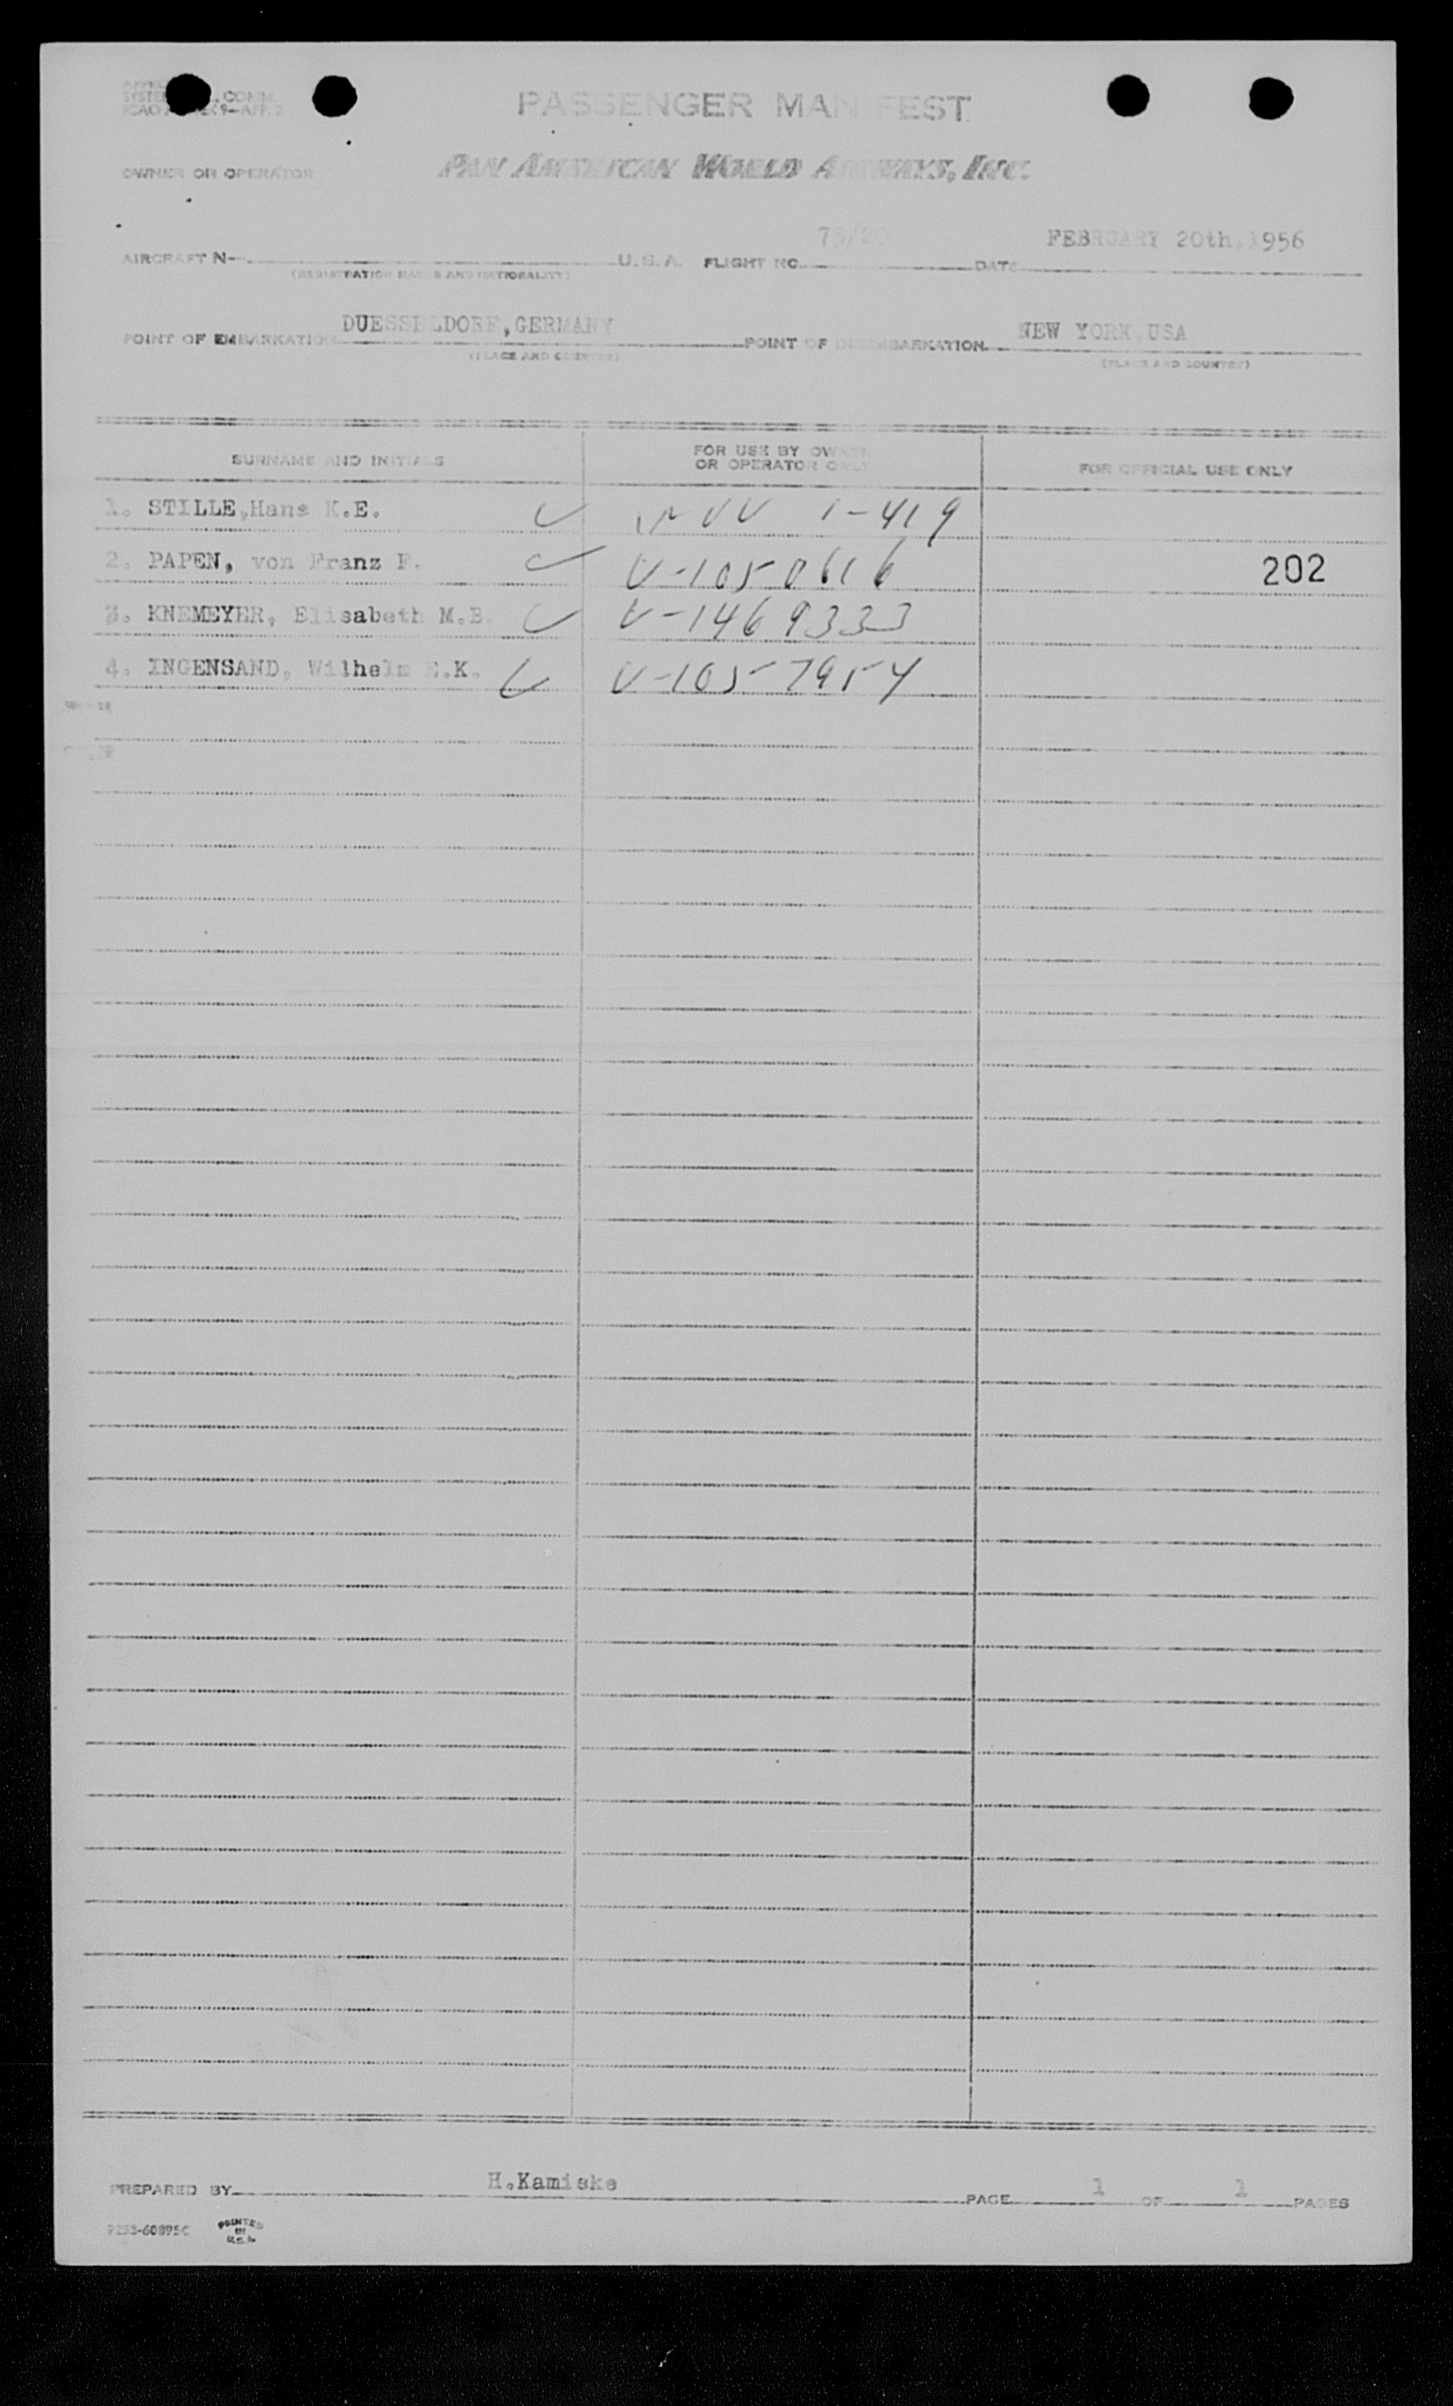 PASSENGER MANIFEST
OWNER OR OPERATOR PAN AMERICAN WORLD AIRWAYS, INC.
AIRCRAFT N- U.S.A. FLIGHT NO. DATE FEBRUARY 20th,1956
(REGISTRATION MARKS AND NATIONALITY)
POINT OF EMBARKATION DUESSELDORF,GERMANY POINT OF DISEMBARKATION NEW YORK,USA
(PLACE AND COUNTRY) (PLACE AND COUNTRY)
SURNAME AND INITIALS FOR USE BY OWNER OR OPERATOR ONLY FOR OFFICIAL USE ONLY
1. STILLE,Hans K.E. 1-419
2. PAPEN, von Franz F. V-1050616 202
3. KNEMEYER, Elisabeth M.B. V-1469333
4. INGENSAND, Wilhelm K. V-1057954
PREPARED BY H.Kamiske PAGE 1 OF 1 PAGES
PRINTED IN U.S.A.